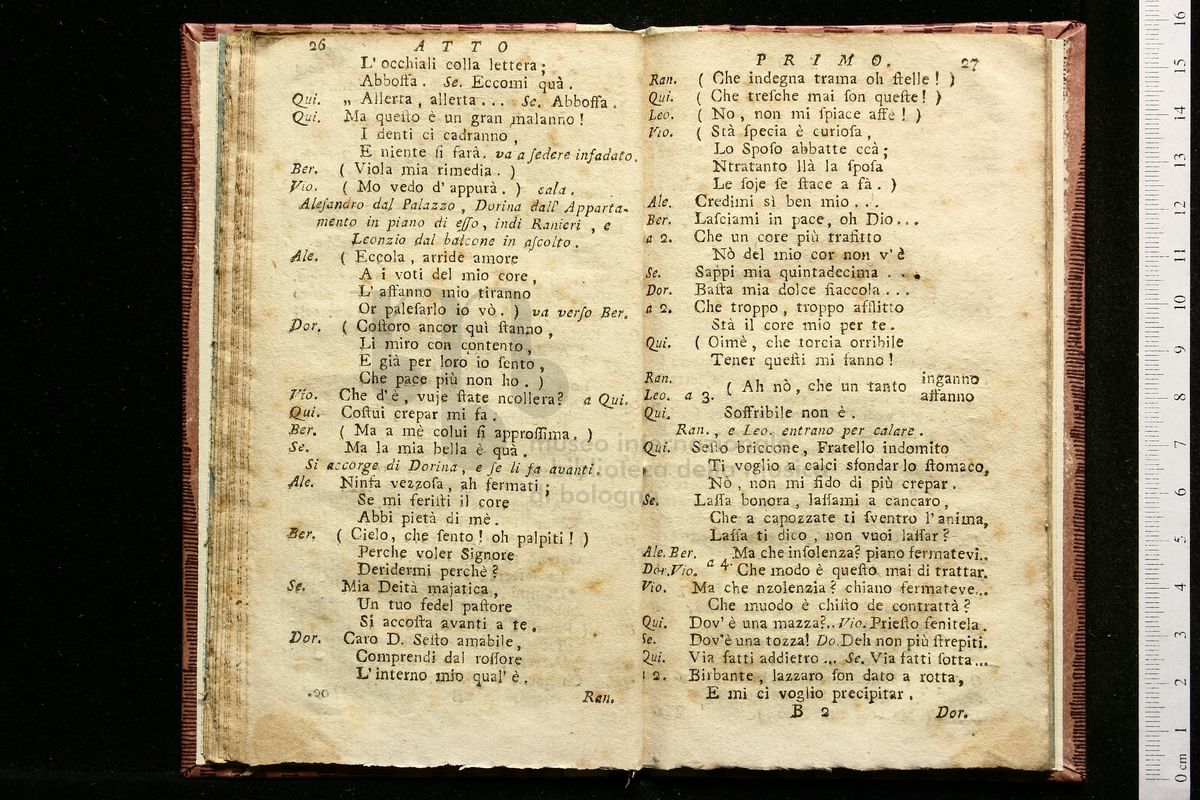 26 ATTO
L' occhiali colla lettera;
Abboſſa. Se. Eccomi quà.
Qui. „ Allerta, allerta... Se. Abboſſa.
Qui. Ma queſto è un gran malanno!
I denti ci cadranno,
E niente ſi farà. va a ſedere infadato.
Ber. ( Viola mia rimedia. )
Vio. ( Mo vedo d' appurà. ) cala.
Aleſandro dal Palazzo, Dorina dall' Apparta-
mento in piano di eſſo, indi Ranieri, e
Leonzio dal balcone in aſcolto.
Ale. ( Eccola, arride amore
A i voti del mio core,
L' affanno mio tiranno
Or paleſarlo io vò. ) va verſo Ber.
Dor. ( Coſtoro ancor quì ſtanno,
Li miro con contento,
E già per loro io ſento,
Che pace più non ho. )
Vio. Che d'è, vuje ſtate ncollera? a Qui.
Qui. Coſtui crepar mi fa.
Ber. ( Ma a mè colui ſi approſſima. )
Se. Ma la mia bella è quà.
Si accorge di Dorina, e ſe li fa avanti.
Ale. Ninfa vezzoſa, ah fermati;
Se mi feriſti il core
Abbi pietà di mè.
Ber. ( Cielo, che ſento! oh palpiti! )
Perche voler Signore
Deridermi perchè?
Se. Mia Deità majatica,
Un tuo fedel paſtore
Si accoſta avanti a te.
Dor. Caro D. Seſto amabile,
Comprendi dal roſſore
L'interno mio qual'è.
Ran.
PRIMO. 27
Ran. ( Che indegna trama oh ſtelle! )
Qui. ( Che treſche mai ſon queſte! )
Leo. ( No, non mi ſpiace affè! )
Vio. ( Stà ſpecia è curioſa,
Lo Spoſo abbatte ccà;
Ntratanto llà la ſpoſa
Le ſoje ſe ſtace a fà. )
Ale. Credimi sì ben mio...
Ber. Laſciami in pace, oh Dio...
a 2. Che un core più trafitto
Nò del mio cor non v'è
Se. Sappi mia quintadecima...
Dor. Baſta mia dolce fiaccola...
a 2. Che troppo, troppo afflitto
Stà il core mio per te.
Qui. ( Oimè, che torcia orribile
Tener queſti mi fanno!
Ran. inganno
Leo. a 3. ( Ah nò, che un tanto affanno
Qui. Soffribile non è.
Ran., e Leo. entrano per calare.
Qui. Seſto briccone, Fratello indomito
Ti voglio a calci sfondar lo ſtomaco,
Nò, non mi fido di più crepar.
Se. Laſſa bonora, laſſami a cancaro,
Che a capozzate ti ſventro l'anima,
Laſſa ti dico, non vuoi laſſar?
Ale. Ber. Ma che inſolenza? piano fermatevi..
Dor. Vio. a 4. Che modo è queſto mai di trattar.
Vio. Ma che nzolenzia? chiano fermateve...
Che muodo è chiſto de contrattà?
Qui. Dov' è una mazza?.. Vio. Prieſto fenitela.
Se. Dov'è una tozza! Do. Deh non più ſtrepiti.
Qui. Via fatti addietro... Se. Via fatti ſotta...
2. Birbante, lazzaro ſon dato a rotta,
E mi ci voglio precipitar.
B 2 Dor.
museo internazionale
e biblioteca della musica
di bologna
16
15
14
13
12
11
10
9
8
7
6
5
4
3
2
1
0 cm